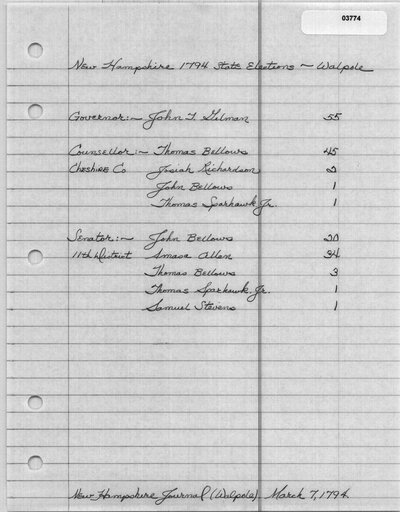 03774
New Hampshire 1794 State Elections ~ Walpole
Governor:~ John T Gilman 55
Counsellor:~ Thomas Bellows 45
Cheshire Co Josiah Richardson 2
John Bellows 1
Thomas Sparhawk Jr. 1
Senator:~ John Bellows 20
11th District Amasa Allen 34
Thomas Bellows 3
Thomas Sparhawk Jr. 1
Samuel Stevens 1
New Hampshire Journal (Walpole) March 7, 1794.